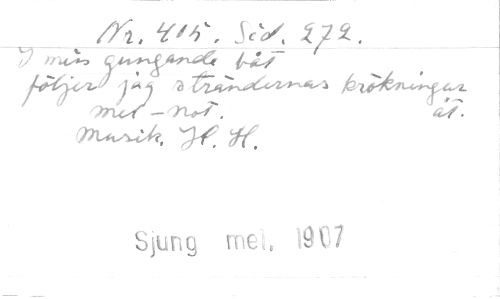 Nr. 415. Sid. 272.
I min gungande båt
följer jag strändernas krökningar
mel-not. åt.
Musik. H. H.
Sjung mel. 1907